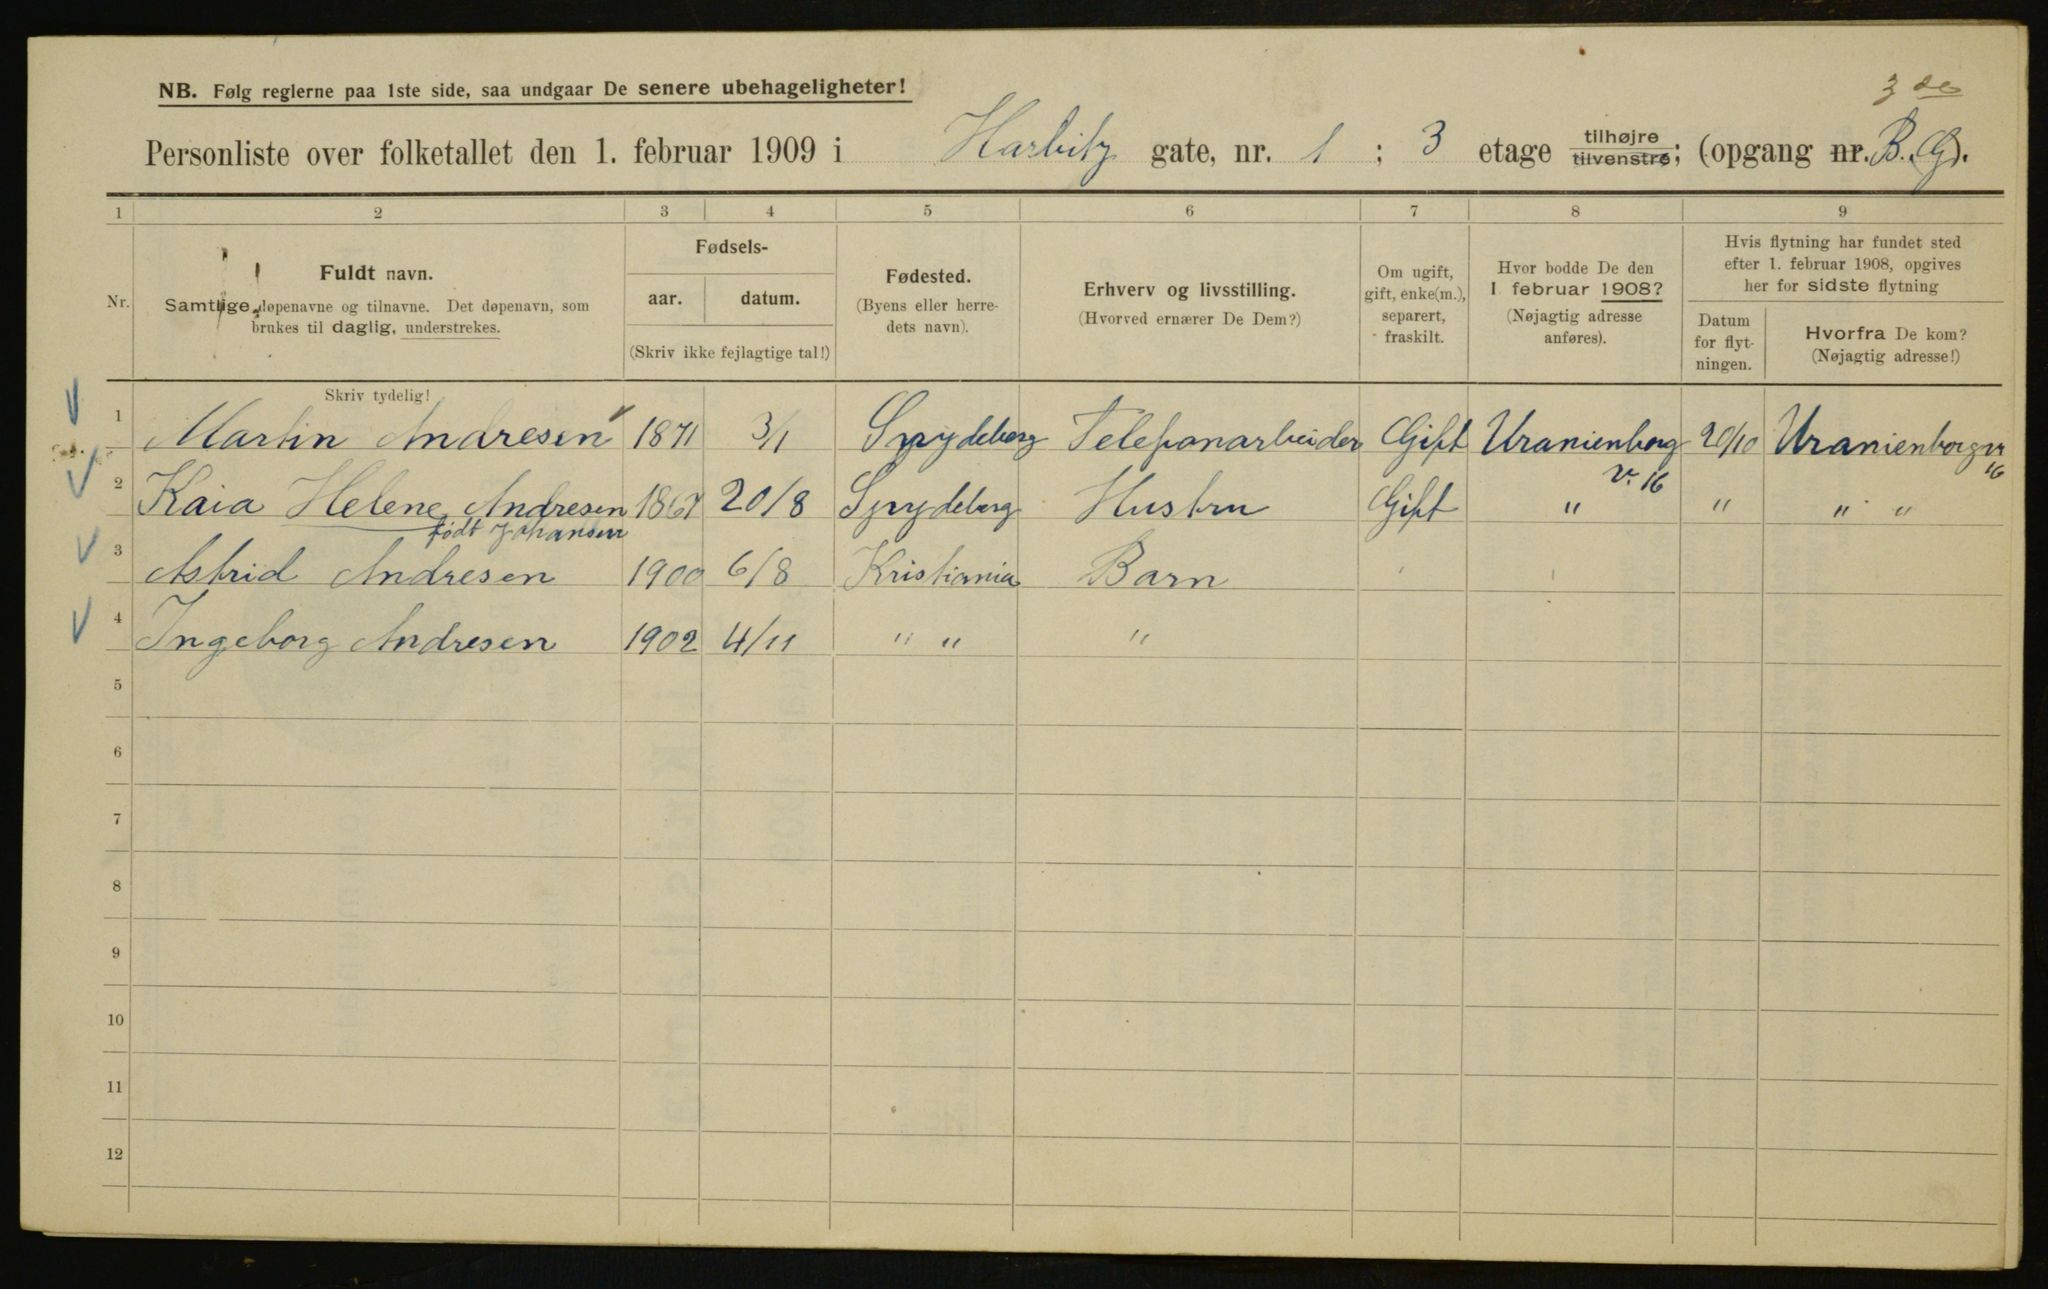 3 de
NB. Følg reglerne paa 1ste side, saa undgaar De senere ubehageligheter!
Personliste over folketallet den 1. februar 1909 i Harbitz gate, nr. 1 ; 3 etage tilhøjre tilvenstre; (opgang nr. B. G).
1 2 3 4 5 6 7 8 9
Nr.
Fuldt navn.
Samtlige døpenavne og tilnavne. Det døpenavn, som
brukes til daglig, understrekes.
Fødsels-
aar. datum.
(Skriv ikke fejlagtige tal!)
Fødested.
(Byens eller herre-
dets navn).
Erhverv og livsstilling.
(Hvorved ernærer De Dem?)
Om ugift,
gift, enke(m.),
separert,
fraskilt.
Hvor bodde De den
1 februar 1908?
(Nøjagtig adresse
anføres).
Hvis flytning har fundet sted
efter 1. februar 1908, opgives
her for sidste flytning
Datum
for flyt-
ningen.
Hvorfra De kom?
(Nøjagtig adresse!)
Skriv tydelig!
1 Martin Andresen 1871 3/1 Spydeberg Telefonarbeider Gift Uranienborg v. 16 20/10 Uranienborg v 16
2 Kaia Helene Andresen 1867 20/8 Spydeberg Hustru Gift " " " "
født Johansen
3 Astrid Andresen 1900 6/8 Kristiania Barn
4 Ingeborg Andresen 1902 4/11 " " "
5
6
7
8
9
10
11
12